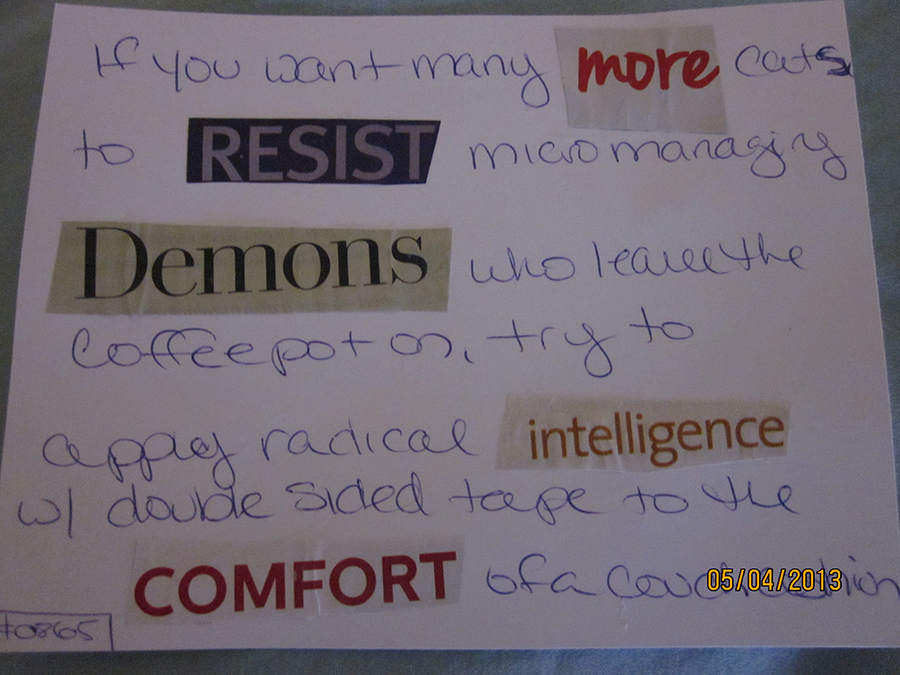 If you want many more cats
to RESIST micromanaging
Demons who leave the
coffeepot on, try to
apply radical intelligence
w/ double sided tape to the
COMFORT of a
05/04/2013
#0865